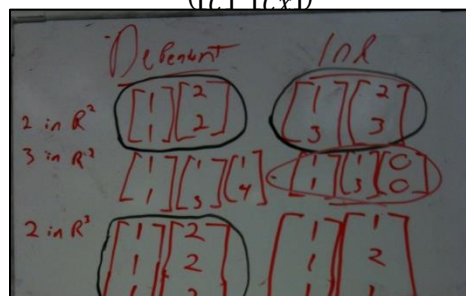 Dependent Ind
2 in R² [1 1] [2 2] [1 3] [2 3]
3 in R² [1 1] [1 3] [1 4] [1 1] [1 3] [0 0]
2 in R³ [1 1 [2 2 [1 1 [1 2